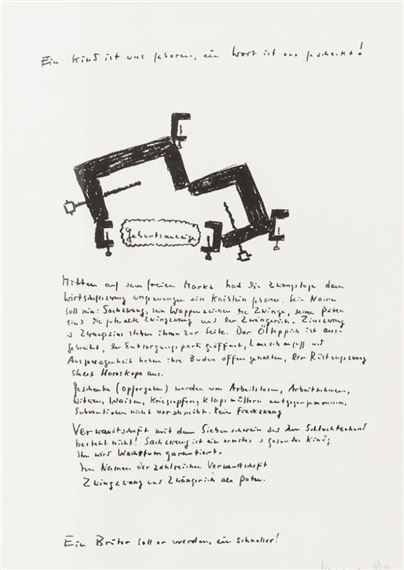 Ein Kind ist uns geboren, ein Wort ist uns geschenkt!
Geburtsanzeige
Mitten auf dem freien Markt hat die Zwangslage dem
Wirtschaftszwang ungezwungen ein Knäblein geboren. Sein Name
soll sein: Sachzwang, sein Wappenzeichen die Zwinge, seine Paten
sind die Zwingzwang und der Zwängerich. Zinszwang
& Zwangszins stehen ihnen zur Seite. Der Ölteppich ist aus-
gebreitet, der Entsorgungspark geöffnet, Lauschangriff und
Ausgewogenheit haben ihre Buden offen gehalten, der Rüstungszwang
stellt Horoskope aus.
Geschenke (Opfergaben) werden von Arbeitslosen, Arbeitnehmern,
Witwen, Waisen, Kriegsopfern, Klapsmüllern entgegengenommen,
Subventionen nicht verschmäht. Kein Frackzwang
Verwandtschaft mit dem Siebenschwein aus dem Schlachtenhaus
besteht nicht! Sachzwang ist ein ernstes & gesundes Kind,
Ihm wird Wachstum garantiert.
Im Namen der zahlreichen Verwandtschaft
Zwingzwang und Zwängerich als Paten.
Ein Brüter soll er werden, ein schneller!